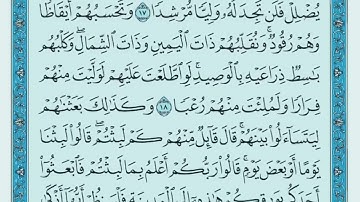 يُضْلِلْ فَلَن تَجِدَ لَهُۥ وَلِيًّا مُّرْشِدًا ١٧ وَتَحْسَبُهُمْ أَيْقَاظًا
وَهُمْ رُقُودٌ ۚ وَنُقَلِّبُهُمْ ذَاتَ ٱلْيَمِينِ وَذَاتَ ٱلشِّمَالِ ۖ وَكَلْبُهُم
بَٰسِطٌ ذِرَاعَيْهِ بِٱلْوَصِيدِ ۚ لَوِ ٱطَّلَعْتَ عَلَيْهِمْ لَوَلَّيْتَ مِنْهُمْ
فِرَارًا وَلَمُلِئْتَ مِنْهُمْ رُعْبًا ١٨ وَكَذَٰلِكَ بَعَثْنَٰهُمْ
لِيَتَسَآءَلُوا۟ بَيْنَهُمْ ۚ قَالَ قَآئِلٌ مِّنْهُمْ كَمْ لَبِثْتُمْ ۖ قَالُوا۟ لَبِثْنَا
يَوْمًا أَوْ بَعْضَ يَوْمٍ ۚ قَالُوا۟ رَبُّكُمْ أَعْلَمُ بِمَا لَبِثْتُمْ فَٱبْعَثُوٓا۟
أَحَدَكُم بِوَرِقِكُمْ هَٰذِهِۦٓ إِلَى ٱلْمَدِينَةِ فَلْيَنظُرْ أَيُّهَآ أَزْكَىٰ